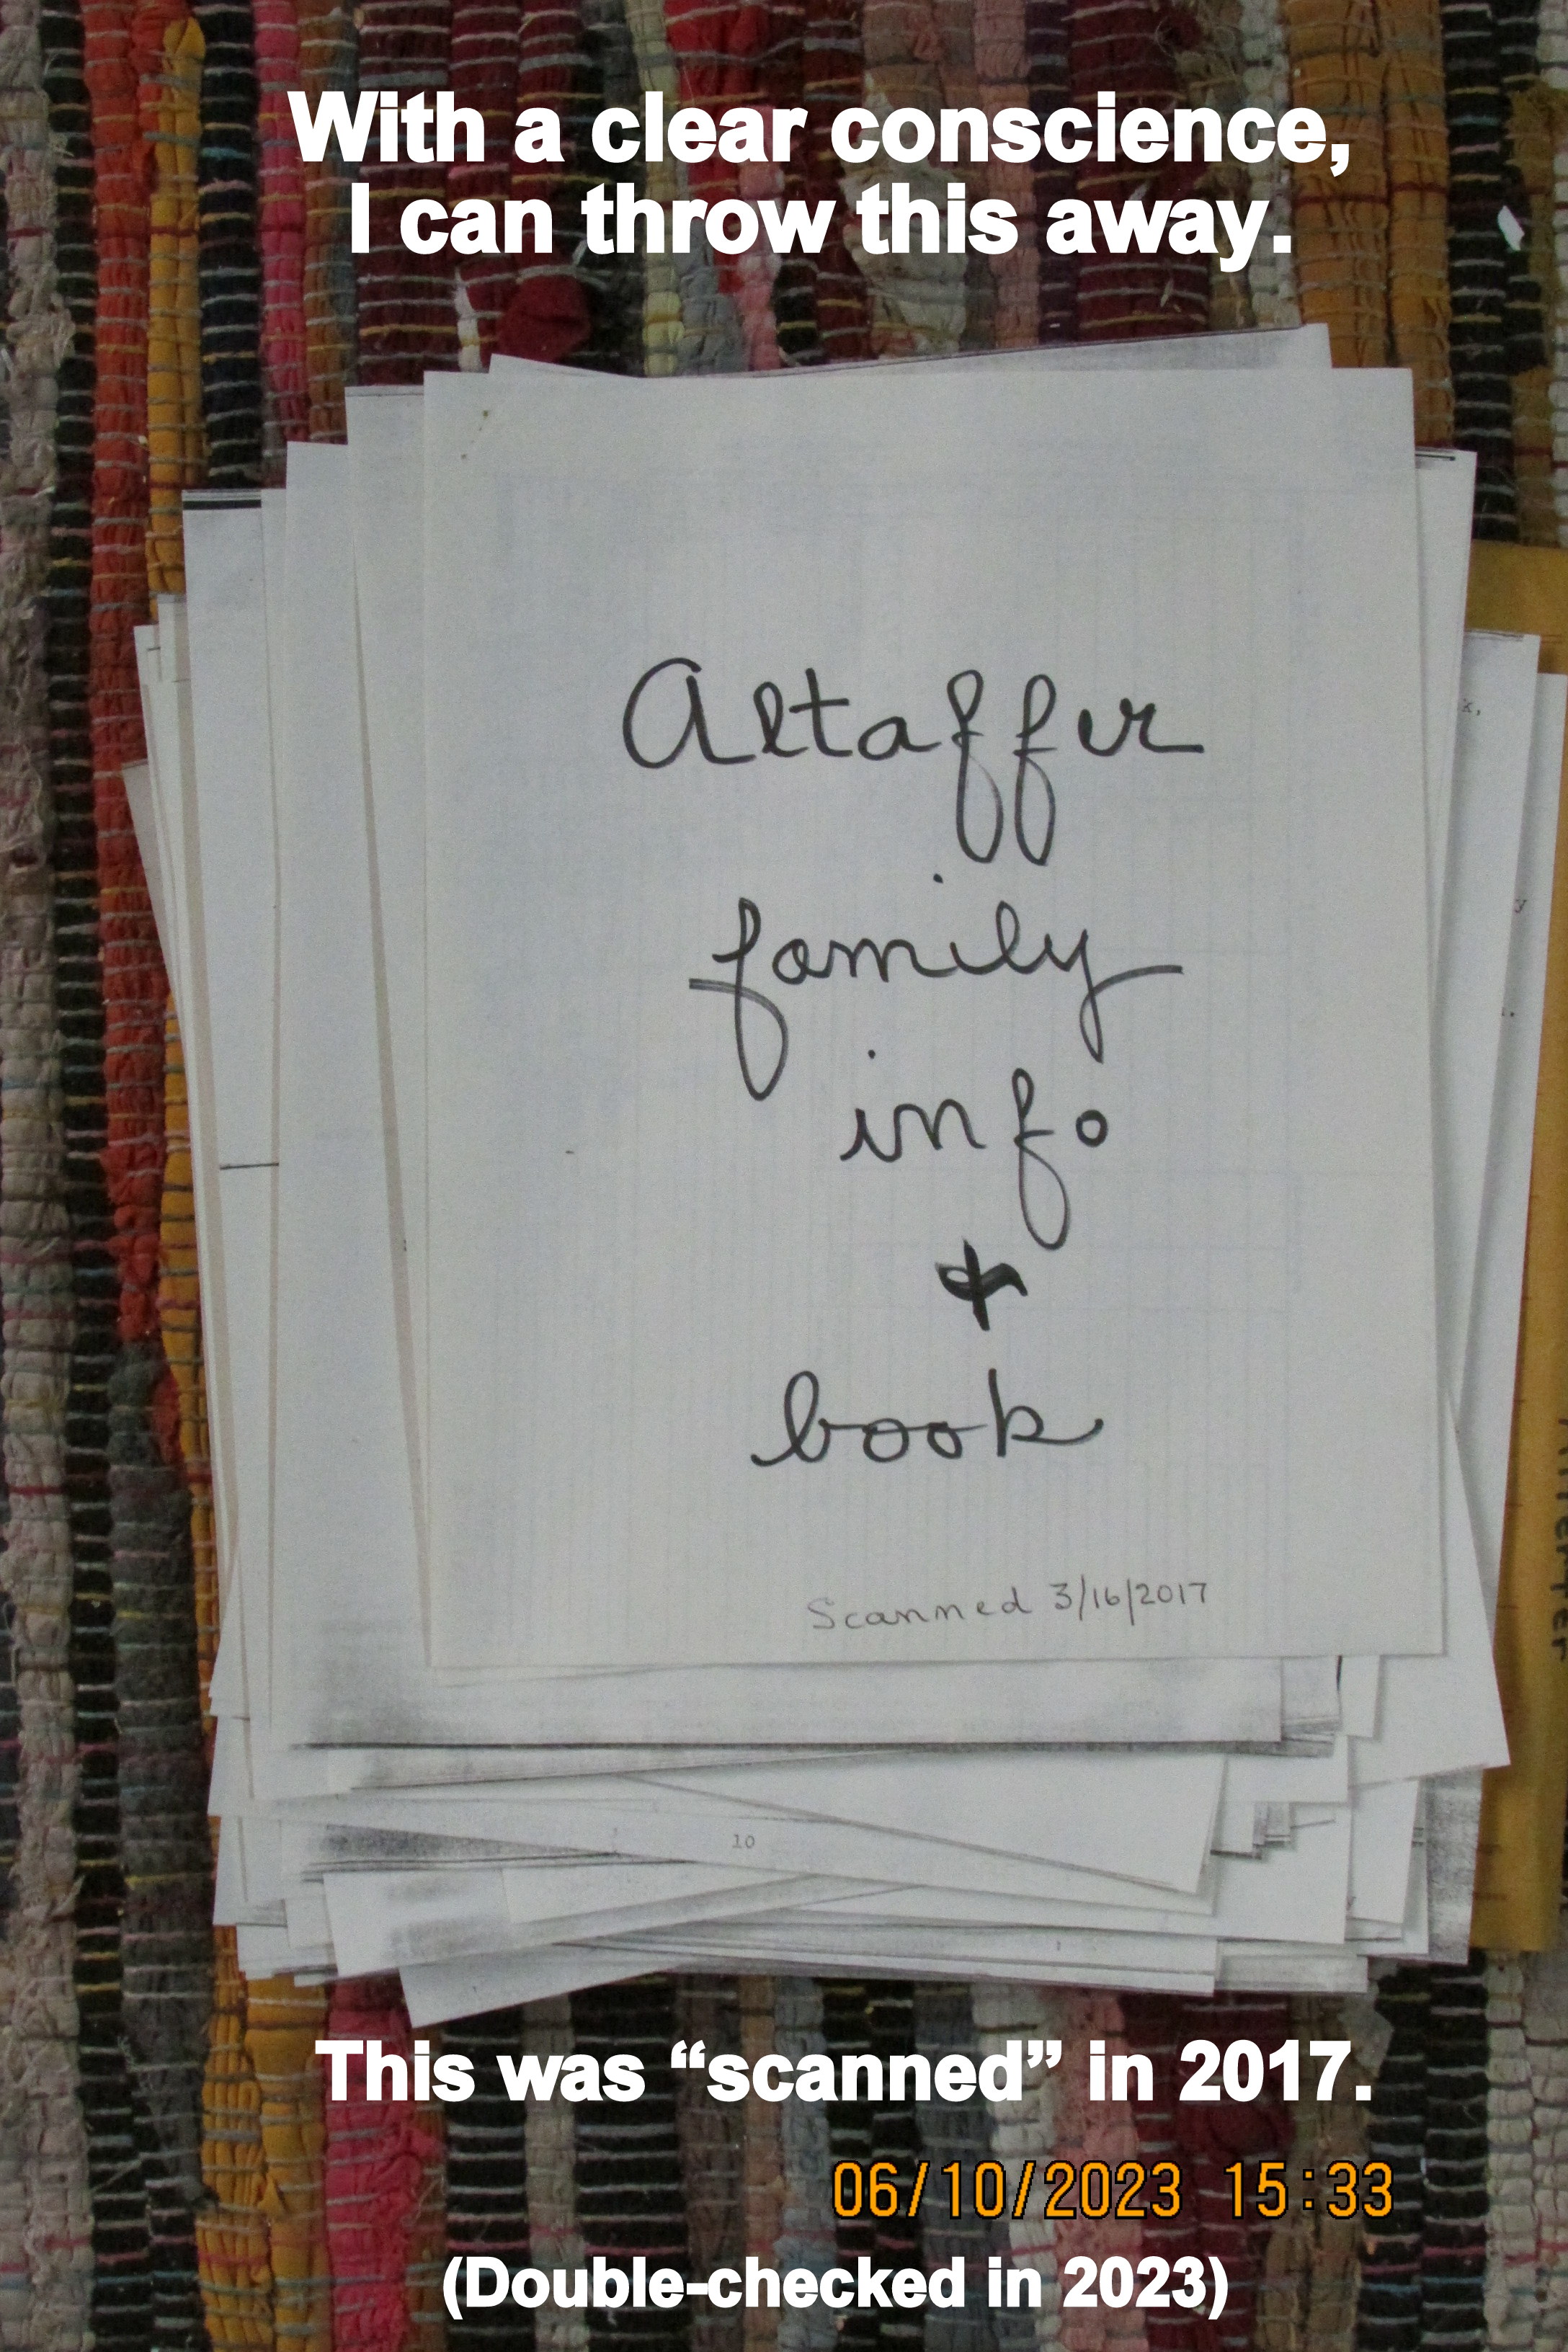 With a clear conscience,
I can throw this away.
Altaffer
family
info
&
book
Scanned 3/16/2017
10
This was “scanned” in 2017.
06/10/2023 15:33
(Double-checked in 2023)